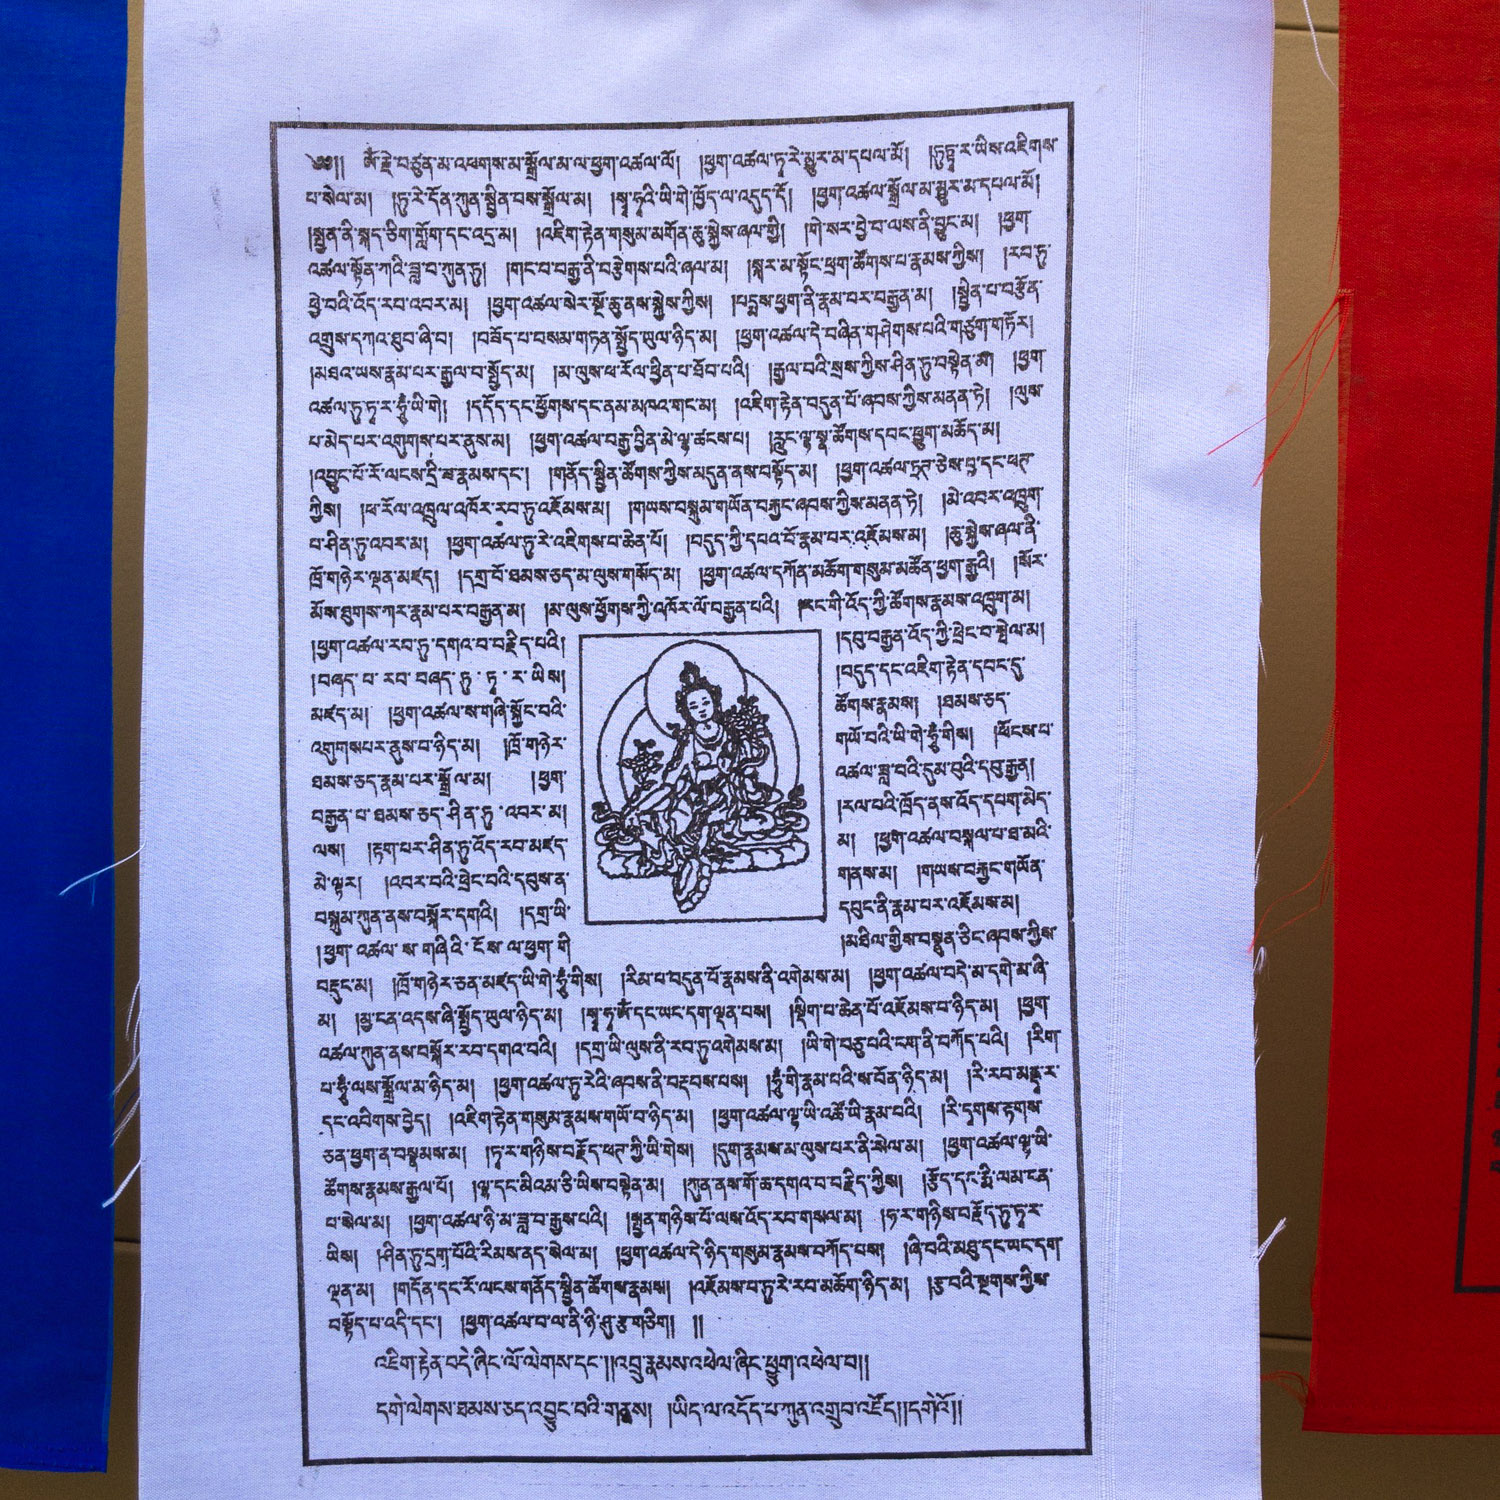 ༄༅།། ཨོཾ་རྗེ་བཙུན་མ་འཕགས་མ་སྒྲོལ་མ་ལ་ཕྱག་འཚལ་ལོ། །ཕྱག་འཚལ་ཏཱ་རེ་མྱུར་མ་དཔལ་མོ། །ཏུཏྟཱ་ར་ཡིས་འཇིགས་
པ་སེལ་མ། །ཏུ་རེ་དོན་ཀུན་སྦྱིན་བས་སྒྲོལ་མ། །སྭཱ་ཧཱའི་ཡི་གེ་ཁྱོད་ལ་འདུད་དོ། །ཕྱག་འཚལ་སྒྲོལ་མ་མྱུར་མ་དཔལ་མོ།
།སྤྱན་ནི་སྐད་ཅིག་གློག་དང་འདྲ་མ། །འཇིག་རྟེན་གསུམ་མགོན་ཆུ་སྐྱེས་ཞལ་གྱི། །གེ་སར་བྱེ་བ་ལས་ནི་བྱུང་མ། །ཕྱག་
འཚལ་སྟོན་ཀའི་ཟླ་བ་ཀུན་ཏུ། །གང་བ་བརྒྱ་ནི་བརྩེགས་པའི་ཞལ་མ། །སྐར་མ་སྟོང་ཕྲག་ཚོགས་པ་རྣམས་ཀྱིས། །རབ་ཏུ་
ཕྱེ་བའི་འོད་རབ་འབར་མ། །ཕྱག་འཚལ་སེར་སྔོ་ཆུ་ནས་སྐྱེས་ཀྱིས། །པདྨས་ཕྱག་ནི་རྣམ་པར་བརྒྱན་མ། །སྦྱིན་པ་བརྩོན་
འགྲུས་དཀའ་ཐུབ་ཞི་བ། །བཟོད་པ་བསམ་གཏན་སྤྱོད་ཡུལ་ཉིད་མ། །ཕྱག་འཚལ་དེ་བཞིན་གཤེགས་པའི་གཙུག་གཏོར།
།མཐའ་ཡས་རྣམ་པར་རྒྱལ་བ་སྤྱོད་མ། །མ་ལུས་ཕ་རོལ་ཕྱིན་པ་ཐོབ་པའི། །རྒྱལ་བའི་སྲས་ཀྱིས་ཤིན་ཏུ་བསྟེན་མ། །ཕྱག་
འཚལ་ཏུ་ཏྟཱ་ར་ཧཱུྃ་ཡི་གེ། །དདོད་དང་ཕྱོགས་དང་ནམ་མཁའ་གང་མ། །འཇིག་རྟེན་བདུན་པོ་ཞབས་ཀྱིས་མནན་ཏེ། །ལུས་
པ་མེད་པར་འགུགས་པར་ནུས་མ། །ཕྱག་འཚལ་བརྒྱ་བྱིན་མེ་ལྷ་ཚངས་པ། །རླུང་ལྷ་སྣ་ཚོགས་དབང་ཕྱུག་མཆོད་མ།
།འབྱུང་པོ་རོ་ལངས་དྲི་ཟ་རྣམས་དང་། །གནོད་སྦྱིན་ཚོགས་ཀྱིས་མདུན་ནས་བསྟོད་མ། །ཕྱག་འཚལ་ཏྲཊ་ཅེས་བྱ་དང་ཕཊ་
ཀྱིས། །ཕ་རོལ་འཁྲུལ་འཁོར་རབ་ཏུ་འཇོམས་མ། །གཡས་བསྐུམ་གཡོན་བརྐྱང་ཞབས་ཀྱིས་མནན་ཏེ། །མེ་འབར་འཁྲུག་
པ་ཤིན་ཏུ་འབར་མ། །ཕྱག་འཚལ་ཏུ་རེ་འཇིགས་པ་ཆེན་པོ། །བདུད་ཀྱི་དཔའ་པོ་རྣམ་པར་འཇོམས་མ། །ཆུ་སྐྱེས་ཞལ་ནི་
ཁྲོ་གཉེར་ལྡན་མཛད། །དགྲ་བོ་ཐམས་ཅད་མ་ལུས་གསོད་མ། །ཕྱག་འཚལ་དཀོན་མཆོག་གསུམ་མཚོན་ཕྱག་རྒྱའི། །སོར་
མོས་ཐུགས་ཀར་རྣམ་པར་བརྒྱན་མ། །མ་ལུས་ཕྱོགས་ཀྱི་འཁོར་ལོ་བརྒྱན་པའི། །རང་གི་འོད་ཀྱི་ཚོགས་རྣམས་འཁྲུག་མ།
།ཕྱག་འཚལ་རབ་ཏུ་དགའ་བ་བརྗིད་པའི། །དབུ་བརྒྱན་འོད་ཀྱི་ཕྲེང་བ་སྤེལ་མ།
།བཞད་པ་རབ་བཞད་ཏུ་ཏྟཱ་ར་ཡིས། །བདུད་དང་འཇིག་རྟེན་དབང་དུ་
མཛད་མ། །ཕྱག་འཚལ་ས་གཞི་སྐྱོང་བའི་ ཚོགས་རྣམས། །ཐམས་ཅད་
འགུགསཔར་ནུས་པ་ཉིད་མ། །ཁྲོ་གཉེར་ གཡོ་བའི་ཡི་གེ་ཧཱུྃ་གིས། །ཕོངས་པ་
ཐམས་ཅད་རྣམ་པར་སྒྲོལ་མ། །ཕྱག་ འཚལ་ཟླ་བའི་དུམ་བུའི་དབུ་རྒྱན།
བརྒྱན་པ་ཐམས་ཅད་ཤིན་ཏུ་འབར་མ། །རལ་བའི་ཁྲོད་ནས་འོད་དཔག་མེད་
ལས། །རྟག་པར་ཤིན་ཏུ་འོད་རབ་མཛད་ མ། །ཕྱག་འཚལ་བསྐལ་པ་ཐ་མའི་
མེ་ལྟར། །འབར་བའི་ཕྲེང་བའི་དབུས་ན་ གནས་མ། །གཡས་བརྐྱང་གཡོན་
བསྐུམ་ཀུན་ནས་བསྐོར་དགའི། །དགྲ་ཡི་ དཔུང་ནི་རྣམ་པར་འཇོམས་མ།
།ཕྱག་འཚལ་ས་གཞིའི་ངོས་ལ་ཕྱག་གི །མཐིལ་གྱིས་བསྣུན་ཅིང་ཞབས་ཀྱིས་
བརྡུང་མ། །ཁྲོ་གཉེར་ཅན་མཛད་ཡི་གེ་ཧཱུྃ་གིས། །རིམ་པ་བདུན་པོ་རྣམས་ནི་འགེམས་མ། །ཕྱག་འཚལ་བདེ་མ་དགེ་མ་ཞི་
མ། །མྱ་ངན་འདས་ཞི་སྤྱོད་ཡུལ་ཉིད་མ། །སྭཱ་ཧཱ་ཨོཾ་དང་ཡང་དག་ལྡན་བས། །སྡིག་པ་ཆེན་པོ་འཇོམས་པ་ཉིད་མ། །ཕྱག་
འཚལ་ཀུན་ནས་བསྐོར་རབ་དགའ་བའི། །དགྲ་ཡི་ལུས་ནི་རབ་ཏུ་འགེམས་མ། །ཡི་གེ་བཅུ་པའི་ངག་ནི་བཀོད་པའི། །རིག་
པ་ཧཱུྃ་ལས་སྒྲོལ་མ་ཉིད་མ། །ཕྱག་འཚལ་ཏུ་རེའི་ཞབས་ནི་བརྡབས་པས། །ཧཱུྃ་གི་རྣམ་པའི་ས་བོན་ཉིད་མ། །རི་རབ་མནྡཱ་ར་
དང་འབིགས་བྱེད། །འཇིག་རྟེན་གསུམ་རྣམས་གཡོ་བ་ཉིད་མ། །ཕྱག་འཚལ་ལྷ་ཡི་འཚོ་ཡི་རྣམ་པའི། །རི་དྭགས་རྟགས་
ཅན་ཕྱག་ན་བསྣམས་མ། །ཏཱ་ར་གཉིས་བརྗོད་ཕཊ་ཀྱི་ཡི་གེས། །དུག་རྣམས་མ་ལུས་པར་ནི་སེལ་མ། །ཕྱག་འཚལ་ལྷ་ཡི་
ཚོགས་རྣམས་རྒྱལ་པོ། །ལྷ་དང་མིའམ་ཅི་ཡིས་བསྟེན་མ། །ཀུན་ནས་གོ་ཆ་དགའ་བ་བརྗིད་ཀྱིས། །རྩོད་དང་རྨི་ལམ་ངན་
པ་སེལ་མ། །ཕྱག་འཚལ་ཉི་མ་ཟླ་བ་རྒྱས་པའི། །སྤྱན་གཉིས་པོ་ལས་འོད་རབ་གསལ་མ། །ཧ་ར་གཉིས་བརྗོད་ཏུ་ཏྟཱ་ར་
ཡིས། །ཤིན་ཏུ་དྲག་པོའི་རིམས་ནད་སེལ་མ། །ཕྱག་འཚལ་དེ་ཉིད་གསུམ་རྣམས་བཀོད་པས། །ཞི་བའི་མཐུ་དང་ཡང་དག་
ལྡན་མ། །གདོན་དང་རོ་ལངས་གནོད་སྦྱིན་ཚོགས་རྣམས། །འཇོམས་པ་ཏུ་རེ་རབ་མཆོག་ཉིད་མ། །རྩ་བའི་སྔགས་ཀྱིས་
བསྟོད་པ་འདི་དང་། །ཕྱག་འཚལ་བ་ལ་ནི་ཉི་ཤུ་རྩ་གཅིག། །།
འཇིག་རྟེན་བདེ་ཞིང་ལོ་ལེགས་དང་།།འབྲུ་རྣམས་འཕེལ་ཞིང་ཕྱུག་འཕེལ་བ།།
དགེ་ལེགས་ཐམས་ཅད་འབྱུང་བའི་གནས། །ཡིད་ལ་འདོད་པ་ཀུན་འགྲུབ་འཛོད།།དགེའོ།།